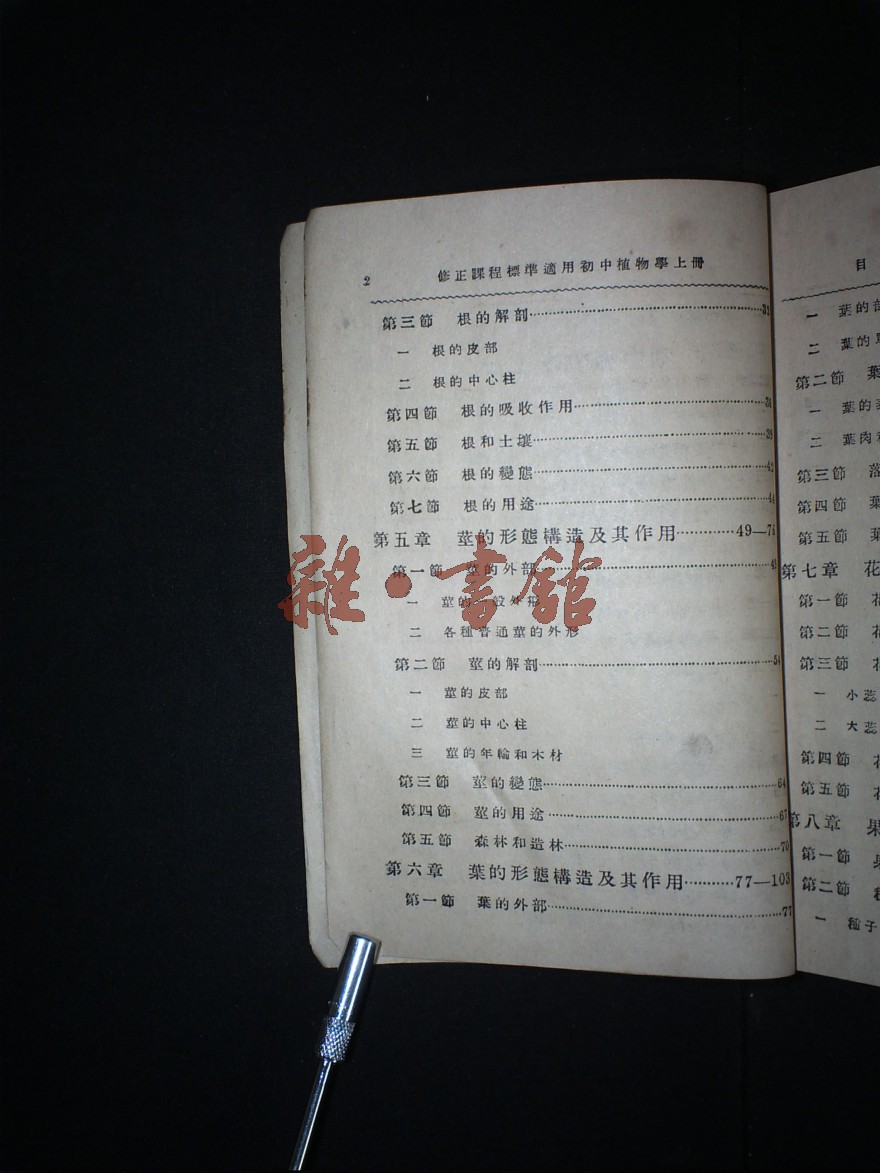 2 修正課程標準適用初中植物學上冊
第三節 根的解剖
一 根的皮部
二 根的中心柱
第四節 根的吸收作用
第五節 根和土壤
第六節 根的變態
第七節 根的用途
第五章 莖的形態構造及其作用 49—
第一節 莖的外部
一 莖的一般外形
二 各種普通莖的外形
第二節 莖的解剖 54
一 莖的皮部
二 莖的中心柱
三 莖的年輪和木材
第三節 莖的變態 64
第四節 莖的用途 67
第五節 森林和造林 70
第六章 葉的形態構造及其作用 77—103
第一節 葉的外部 77
雜·書館
目
一 葉的
二 葉的
第二節 葉
一 葉的
二 葉肉
第三節 落
第四節 葉
第五節 葉
第七章 花
第一節 花
第二節 花
第三節 花
一 小蕊
二 大蕊
第四節 花
第五節 花
第八章 果
第一節 果
第二節 種
一 種子